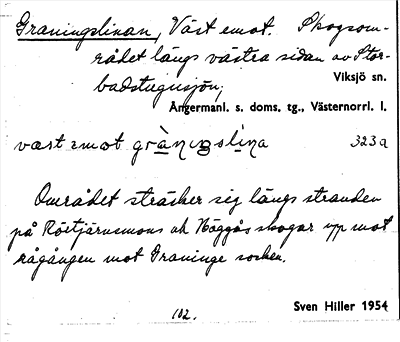 Graningslinan, Väst emot. Skogsom-
rådet längs västra sidan av Stor-
badstugusjön,
Viksjö sn.
Ångermanl. s. doms. tg., Västernorrl. l.
væst emot 323a
Området sträcker sig längs stranden
på Röstjärnsmons och Häggås skogar upp mot
rågången mot Graninge socken.
102.
Sven Hiller 1954